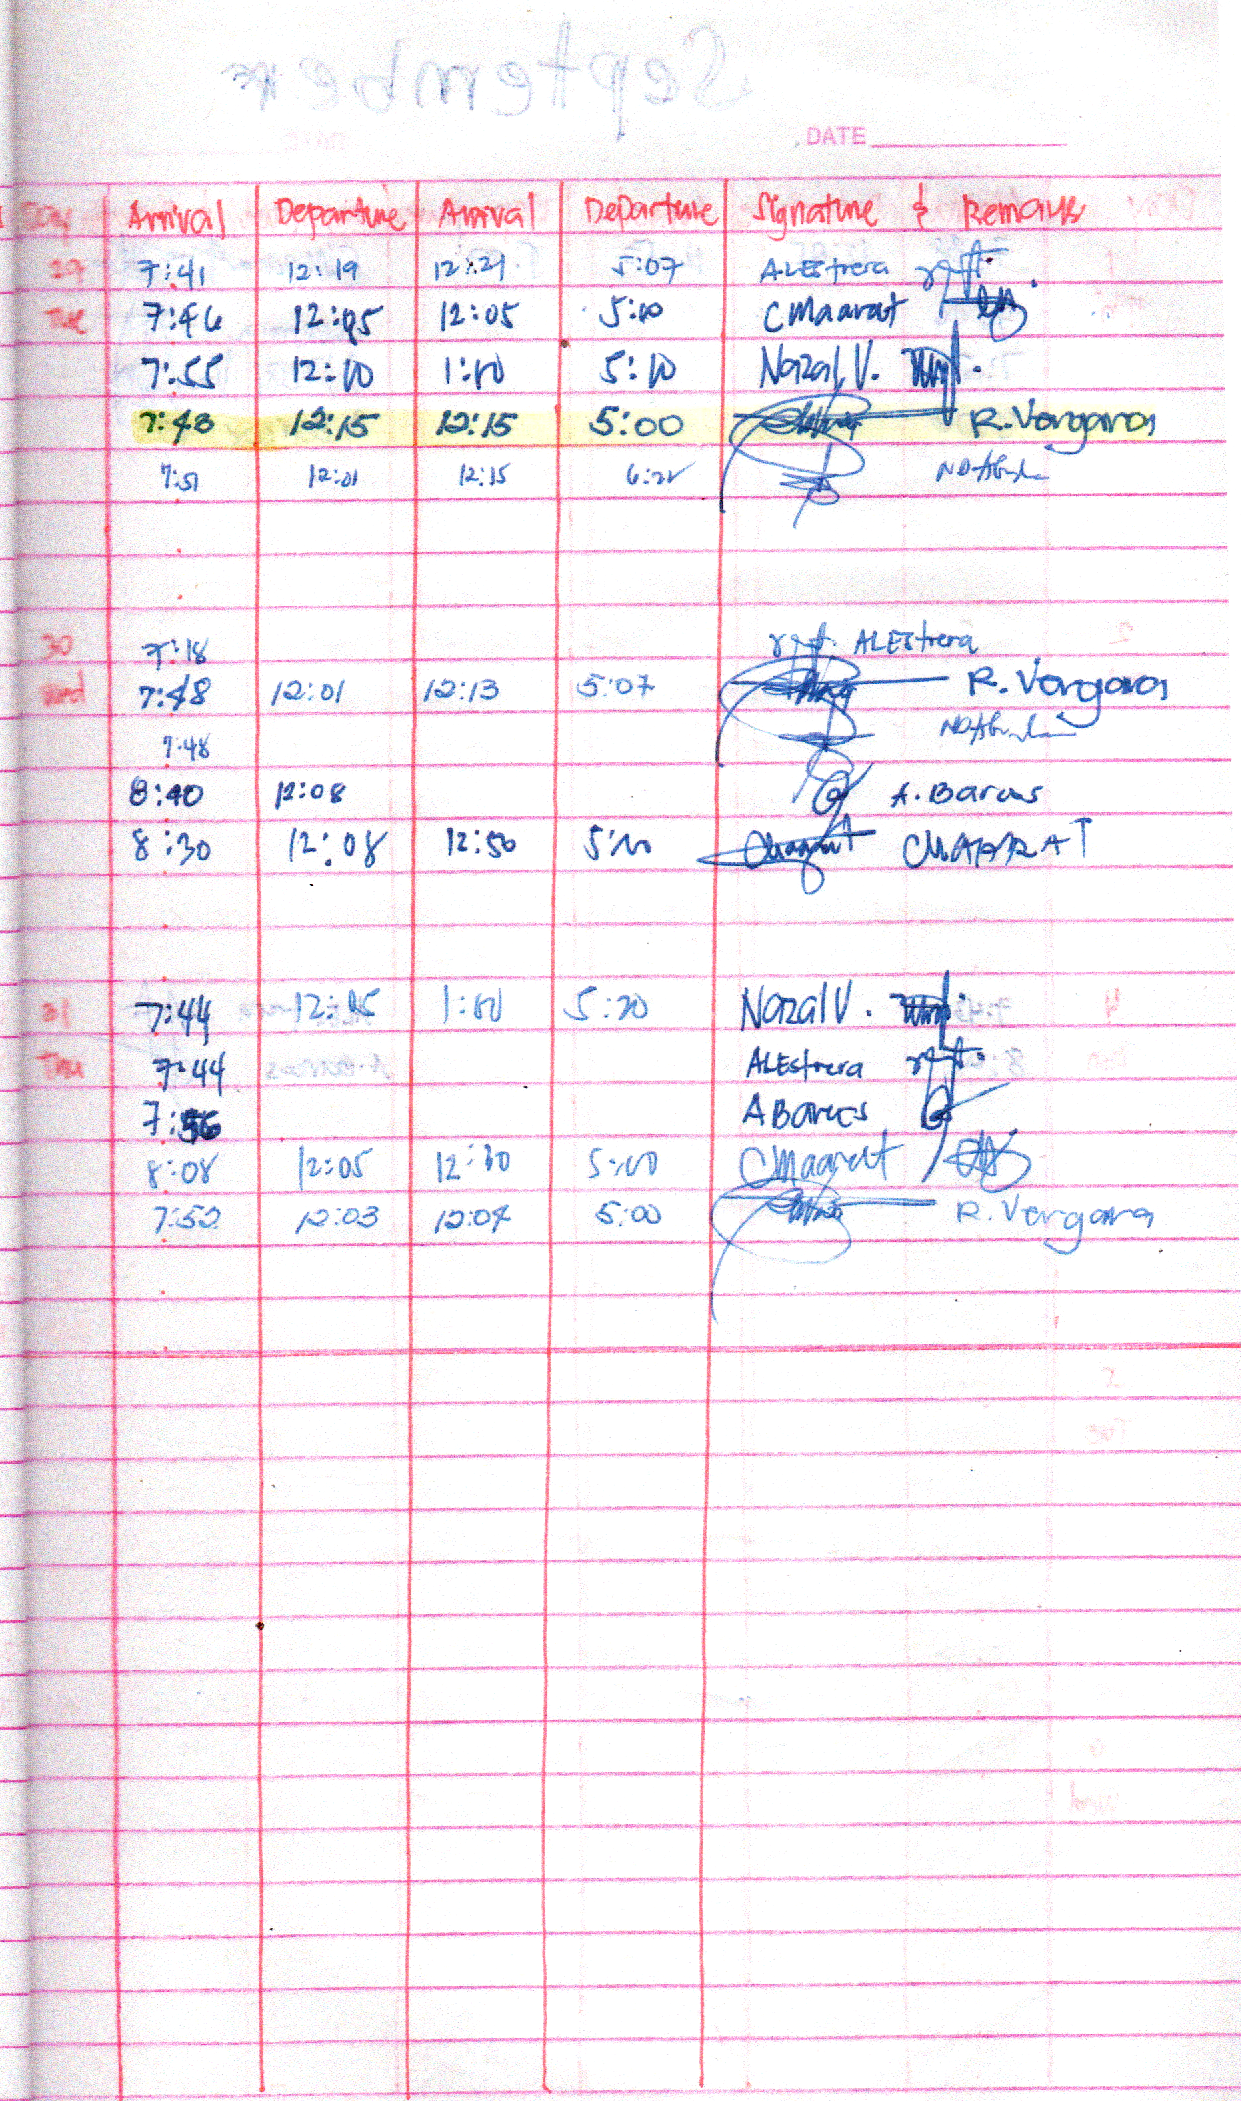 DATE
Day Arrival Departure Arrival Departure Signature & Remarks
29 7:41 12:19 12:21 5:07 A.LEstrera
Tue 7:46 12:05 12:05 5:10 CMaarat
7:55 12:10 1:10 5:10 Nazal V.
7:48 12:15 12:15 5:00 R. Vergara
7:51 12:01 12:15 6:21
30 7:18 ALEstrera
Wed 7:48 12:01 12:13 5:07 R. Vergara
7:48
8:40 12:08 A. Barcus
8:30 12:08 12:50 5:10 CMAARAT
31 7:44 12:05 1:10 5:20 Nazal V.
Thu 7:44 ALEstrera
7:56 A Barcus
8:08 12:05 12:30 5:10 CMaarat
7:52 12:03 12:04 5:00 R. Vergara